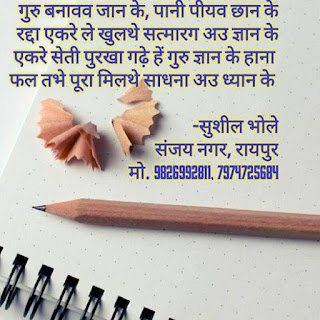 गुरु बनावव जान के, पानी पीयव छान के
रद्दा एकरे ले खुलथे सत्मारग अउ ज्ञान के
एकरे सेती पुरखा गढ़े हें गुरु ज्ञान के हाना
फल तभे पूरा मिलथे साधना अउ ध्यान के
-सुशील भोले
संजय नगर, रायपुर
मो. 9826992811, 7974725684